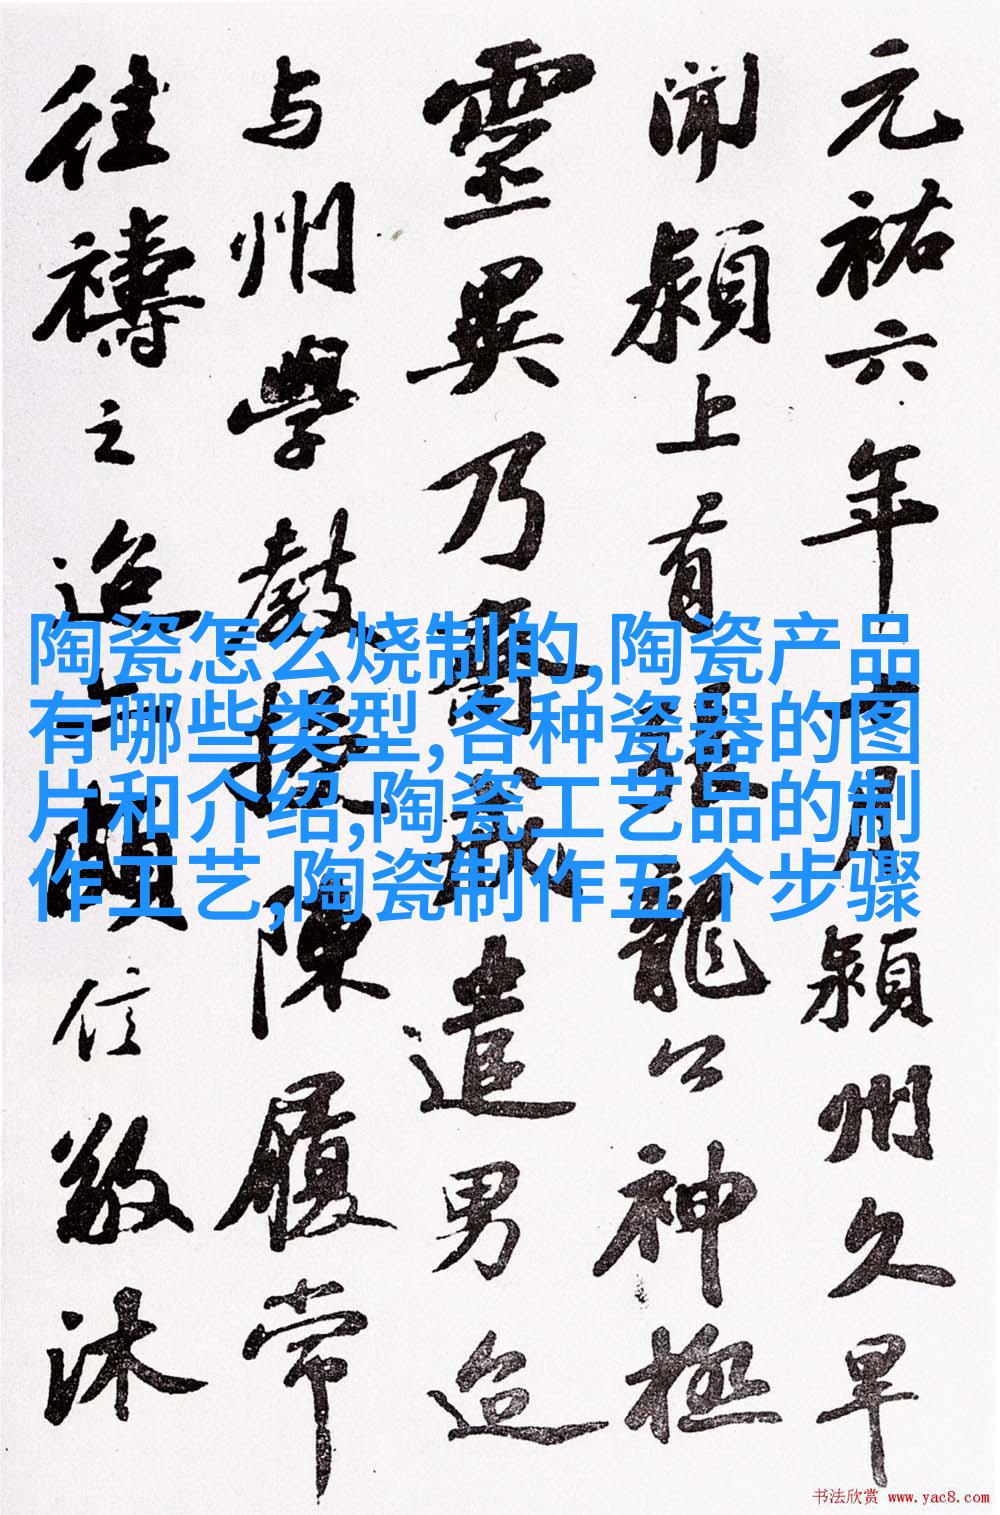 元祐六年十月潁州久旱
聞潁上有張龍公神極
靈異乃齋戒遣男迨
与州學教授陳履常
往禱之迨亦頗信敬沐
陶瓷怎么烧制的,陶瓷产品
有哪些类型,各种瓷器的图
片和介绍,陶瓷工艺品的制
作工艺,陶瓷制作五个步骤
书法欣赏 www.yac8.com